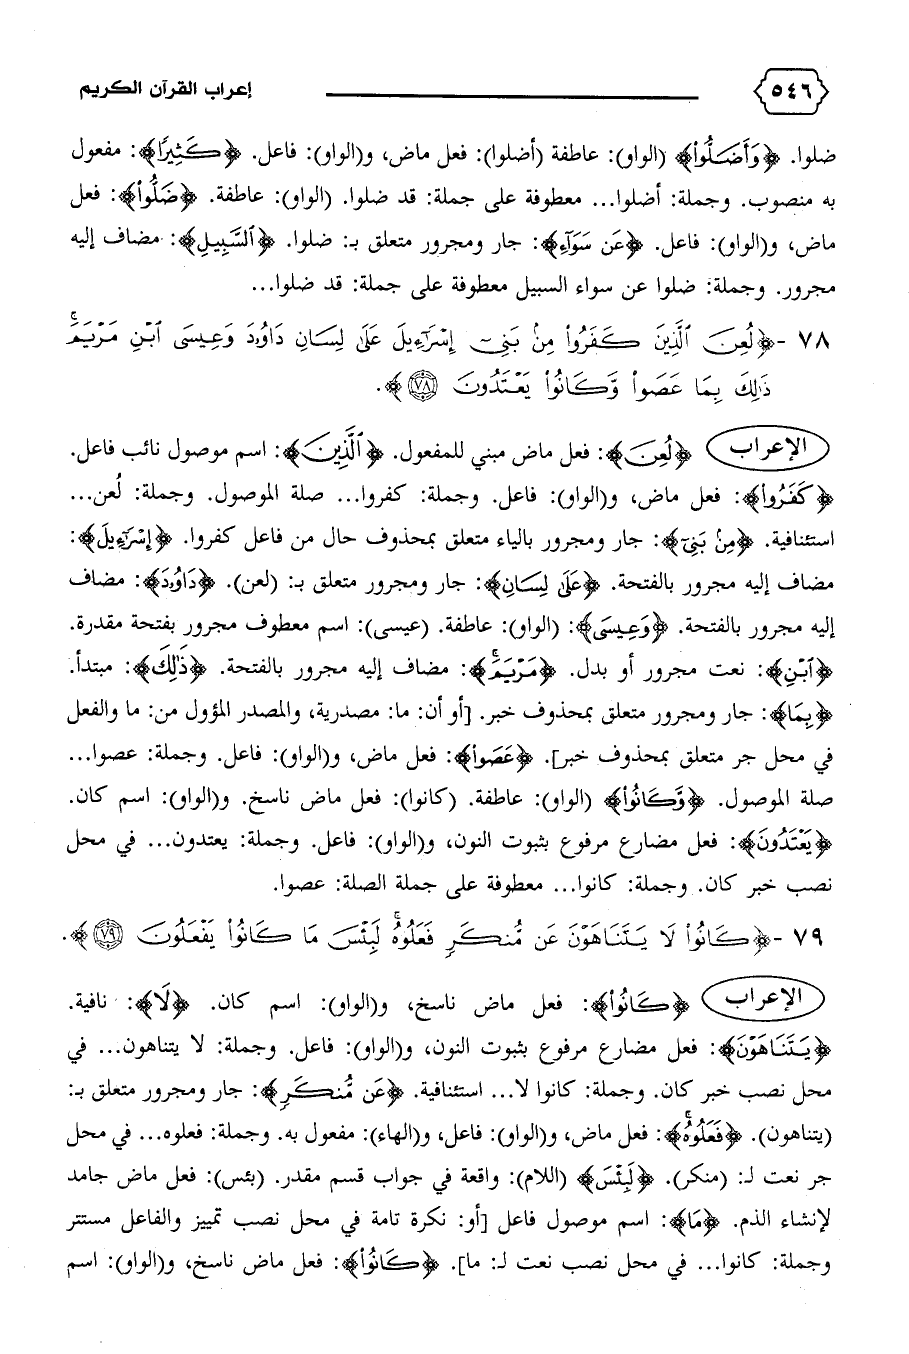 ٥٤٦ إعراب القرآن الكريم
ضلوا. ﴿وَأَضَلُّوا۟﴾ (الواو): عاطفة (أضلوا): فعل ماض، و(الواو): فاعل. ﴿كَثِيرًا﴾: مفعول
به منصوب. وجملة: أضلوا... معطوفة على جملة: قد ضلوا. (الواو): عاطفة. ﴿ضَلُّوا۟﴾: فعل
ماض، و(الواو): فاعل. ﴿عَن سَوَآءِ﴾: جار ومجرور متعلق بـ: ضلوا. ﴿ٱلسَّبِيلِ﴾: مضاف إليه
مجرور. وجملة: ضلوا عن سواء السبيل معطوفة على جملة: قد ضلوا...
٧٨ -﴿لُعِنَ ٱلَّذِينَ كَفَرُوا۟ مِنۢ بَنِىٓ إِسْرَٰٓءِيلَ عَلَىٰ لِسَانِ دَاوُۥدَ وَعِيسَى ٱبْنِ مَرْيَمَ ۚ
ذَٰلِكَ بِمَا عَصَوا۟ وَّكَانُوا۟ يَعْتَدُونَ ٧٨﴾.
الإعراب ﴿لُعِنَ﴾: فعل ماض مبني للمفعول. ﴿ٱلَّذِينَ﴾: اسم موصول نائب فاعل.
﴿كَفَرُوا۟﴾: فعل ماض، و(الواو): فاعل. وجملة: كفروا... صلة الموصول. وجملة: لُعن...
استئنافية. ﴿مِنۢ بَنِىٓ﴾: جار ومجرور بالياء متعلق بمحذوف حال من فاعل كفروا. ﴿إِسْرَٰٓءِيلَ﴾:
مضاف إليه مجرور بالفتحة. ﴿عَلَىٰ لِسَانِ﴾: جار ومجرور متعلق بـ: (لعن). ﴿دَاوُۥدَ﴾: مضاف
إليه مجرور بالفتحة. ﴿وَعِيسَى﴾: (الواو): عاطفة. (عيسى): اسم معطوف مجرور بفتحة مقدرة.
﴿ٱبْنِ﴾: نعت مجرور أو بدل. ﴿مَرْيَمَ ۚ﴾: مضاف إليه مجرور بالفتحة. ﴿ذَٰلِكَ﴾: مبتدأ.
﴿بِمَا﴾: جار ومجرور متعلق بمحذوف خبر. [أو أن: ما: مصدرية، والمصدر المؤول من: ما والفعل
في محل جر متعلق بمحذوف خبر]. ﴿عَصَوا۟﴾: فعل ماض، و(الواو): فاعل. وجملة: عصوا...
صلة الموصول. ﴿وَّكَانُوا۟﴾ (الواو): عاطفة. (كانوا): فعل ماض ناسخ. و(الواو): اسم كان.
﴿يَعْتَدُونَ﴾: فعل مضارع مرفوع بثبوت النون، و(الواو): فاعل. وجملة: يعتدون... في محل
نصب خبر كان. وجملة: كانوا... معطوفة على جملة الصلة: عصوا.
٧٩ -﴿كَانُوا۟ لَا يَتَنَاهَوْنَ عَن مُّنكَرٍ فَعَلُوهُ ۚ لَبِئْسَ مَا كَانُوا۟ يَفْعَلُونَ ٧٩﴾.
الإعراب ﴿كَانُوا۟﴾: فعل ماض ناسخ، و(الواو): اسم كان. ﴿لَا﴾: نافية.
﴿يَتَنَاهَوْنَ﴾: فعل مضارع مرفوع بثبوت النون، و(الواو): فاعل. وجملة: لا يتناهون... في
محل نصب خبر كان. وجملة: كانوا لا... استئنافية. ﴿عَن مُّنكَرٍ﴾: جار ومجرور متعلق بـ:
(يتناهون). ﴿فَعَلُوهُ ۚ﴾: فعل ماض، و(الواو): فاعل، و(الهاء): مفعول به. وجملة: فعلوه... في محل
جر نعت لـ: (منكر). ﴿لَبِئْسَ﴾ (اللام): واقعة في جواب قسم مقدر. (بئس): فعل ماض جامد
لإنشاء الذم. ﴿مَا﴾: اسم موصول فاعل [أو: نكرة تامة في محل نصب تمييز والفاعل مستتر
وجملة: كانوا... في محل نصب نعت لـ: ما]. ﴿كَانُوا۟﴾: فعل ماض ناسخ، و(الواو): اسم